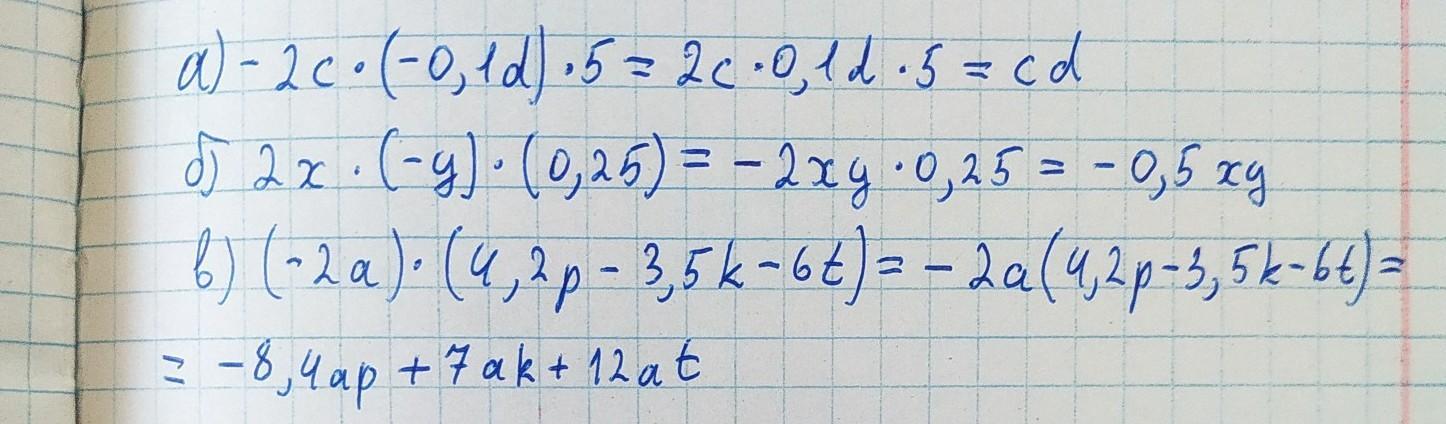 а) - 2c · (-0,1d) · 5 = 2c · 0,1d · 5 = cd
б) 2x · (-y) · (0,25) = - 2xy · 0,25 = - 0,5 xy
в) (-2a) · (4,2p - 3,5k - 6t) = - 2a (4,2p - 3,5k - 6t) =
= -8,4ap + 7ak + 12at